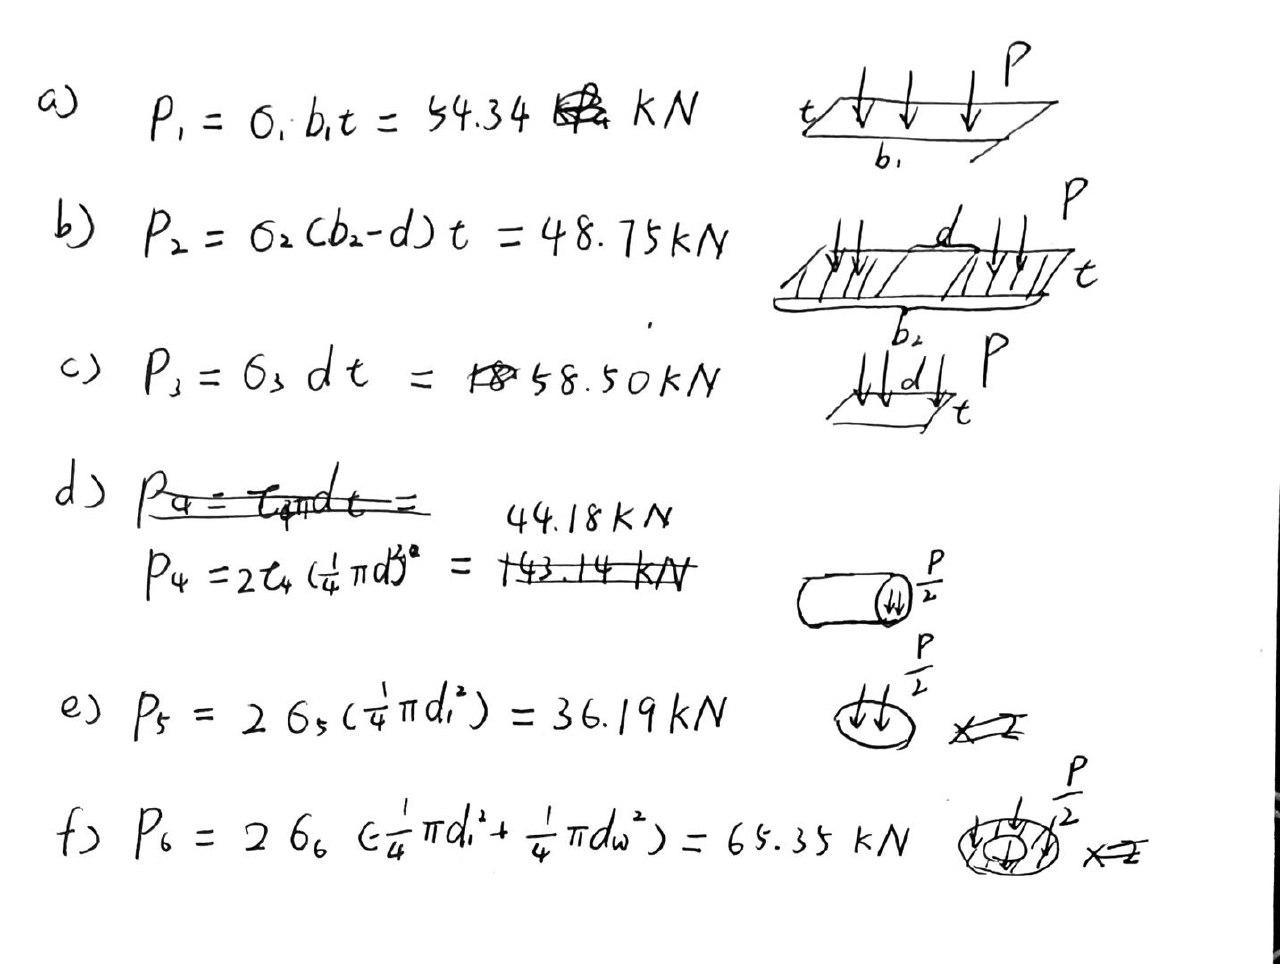 a) P₁ = σ₁ b₁t = 54.34 kN
P
t
b₁
b) P₂ = σ₂ (b₂-d) t = 48.75 kN
P
d
t
b₂
c) P₃ = σ₃ d t = 58.50 kN
P
d
t
d) P₄ = τ₄πdt =
44.18 kN
P₄ = 2τ₄ (¼ πd²) = 143.14 kN
P/2
e) P₅ = 2 σ₅ (¼ πd₁²) = 36.19 kN
P/2
×2
f) P₆ = 2 σ₆ (-¼ πd₁² + ¼ πd_w²) = 65.35 kN
P/2
×2